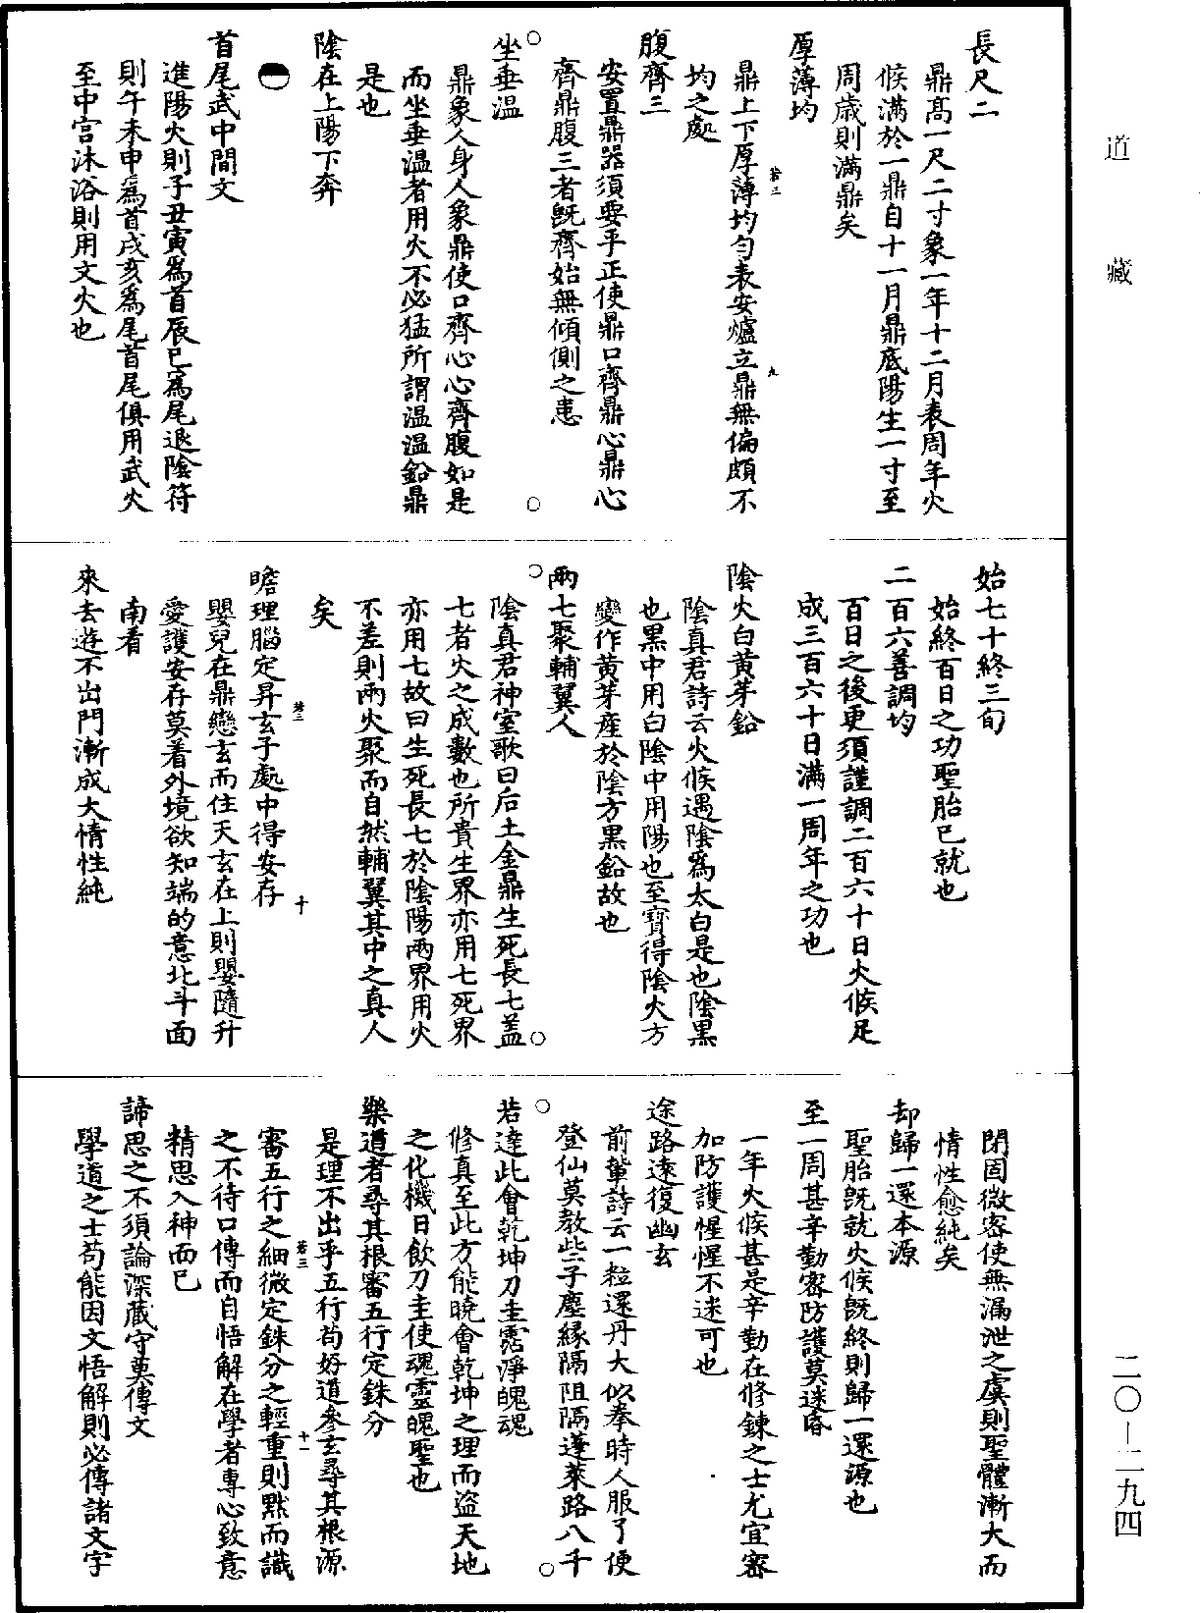 道藏
長尺二
鼎高一尺二寸象一年十二月表周年火
候滿於一鼎自十一月鼎底陽生一寸至
周歲則滿鼎矣
厚薄均
鼎上下厚薄均勻表安爐立鼎無偏頗不
均之處
腹齊三
安置鼎器須要乎正使鼎口齊鼎心鼎心
齊鼎腹三者既齊始無傾側之患
坐垂温
鼎象人身人象鼎使口齊心心齊腹如是
而坐垂温者用火不必猛所謂温温鉛鼎
是也
陰在上陽下奔
首尾武中間文
進陽火則子丑寅爲首辰巳爲尾退陰符
則午未申爲首戌亥爲尾首尾俱用武火
至中宮沐浴則用文火也
始七十終三旬
始終百日之功聖胎已就也
二百六善調均
百日之後更須謹調二百六十日火候足
成三百六十日滿一周年之功也
陰火白黃芽鉛
陰真君詩云火候遇陰爲太白是也陰黑
也黑中用白陰中用陽也至寶得陰火方
變作黃芽産於陰方黑鉛故也
兩七聚輔翼人
陰真君神室歌曰后土金鼎生死長七蓋
七者火之成數也所貴生界亦用七死界
亦用七故曰生死長七於陰陽兩界用火
不差則兩火聚而自然輔翼其中之真人
矣
瞻理腦定昇玄子處中得安存
嬰兒在鼎戀玄而住天玄在上則嬰隨升
愛護安存莫着外境欲知端的意北斗面
南看
來去遊不出門漸成大情性純
閉固微密使無漏泄之虞則聖體漸大而
情性愈純矣
却歸一還本源
聖胎既就火候既終則歸一還源也
至一周甚辛勤密防護莫迷昏
一年火候甚是辛勤在修鍊之士尤宜密
加防護惺惺不迷可也
途路遠復幽玄
前輩詩云一粒還丹大似拳時人服了便
登仙莫教些子塵緣隔阻隔蓬萊路八千
若達此會乾坤刀圭霑淨魄魂
修真至此方能曉會乾坤之理而盜天地
之化機日飲刀圭使魂靈魄聖也
樂道者尋其根審五行定銖分
是理不出乎五行苟好道參玄尋其根源
審五行之細微定銖分之輕重則默而識
之不待口傳而自悟解在學者專心致意
精思入神而已
諦思之不須論深藏守莫傳文
學道之士苟能因文悟解則必傳諸文字
二〇—二九四